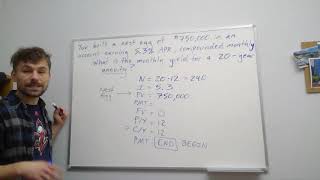 You built a nest egg of $750,000 in an
account earning 5.3% APR, compounded monthly
What is the monthly yield for a 20-year
annuity?
N = 20·12 = 240
I = 5.3
Nest Egg PV = 750,000
PMT =
FV = 0
P/Y = 12
C/Y = 12
PMT: END BEGIN